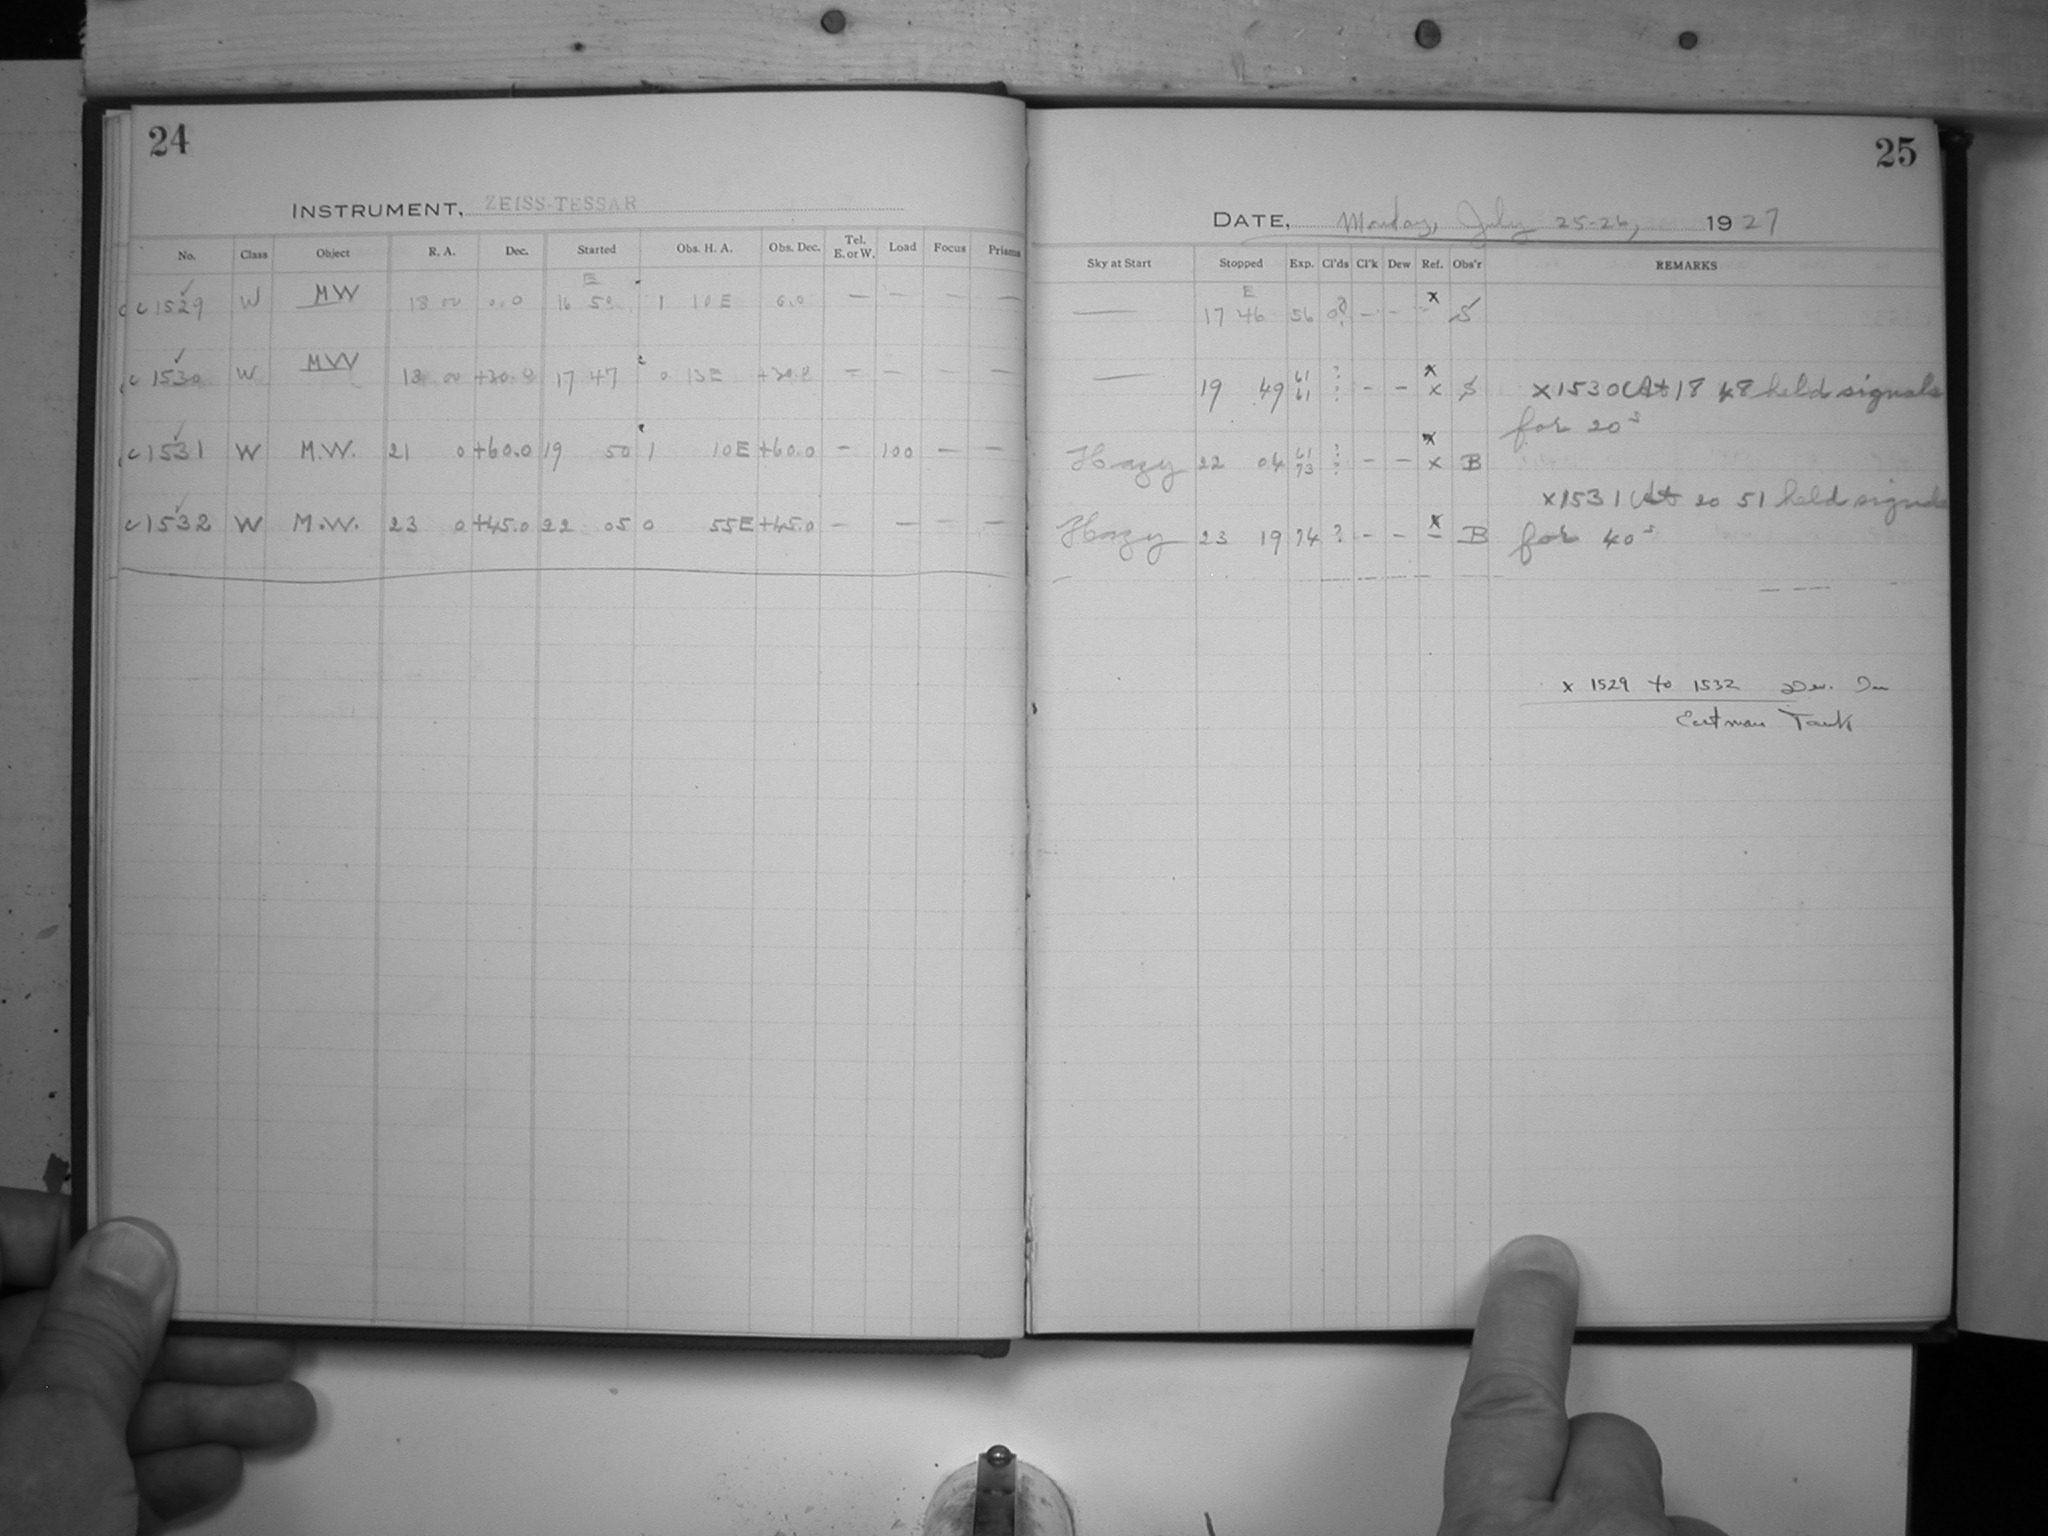 24
INSTRUMENT, ZEISS-TESSAR
No. Class Object R. A. Dec. Started Obs. H. A. Obs. Dec. Tel. E. or W. Load Focus Prisms
E
c 1529 W MW 18 00 0.0 16 50 1 10 E 0.0 — — — —
c 1530 W MW 18 00 +30.0 17 47 0 13 E — — — —
c 1531 W M.W. 21 0 +60.0 19 50 1 10 E +60.0 — 100 — —
c 1532 W M.W. 23 0 +45.0 22 05 0 55 E +45.0 — — — —
25
DATE, Monday, July 25-26, 1927
Sky at Start Stopped Exp. Cl'ds Cl'k Dew Ref. Obs'r REMARKS
E x
— 17 46 56 — — S
61 ? x
— 19 49 61 ? — — x S x1530 At 18 48 held signals
for 20s
61 ? x
Hazy 22 04 73 ? — — x B
x1531 At 20 51 held signals
x
Hazy 23 19 74 ? — — — B for 40s
x 1529 to 1532 Dev. In
Eastman Tank